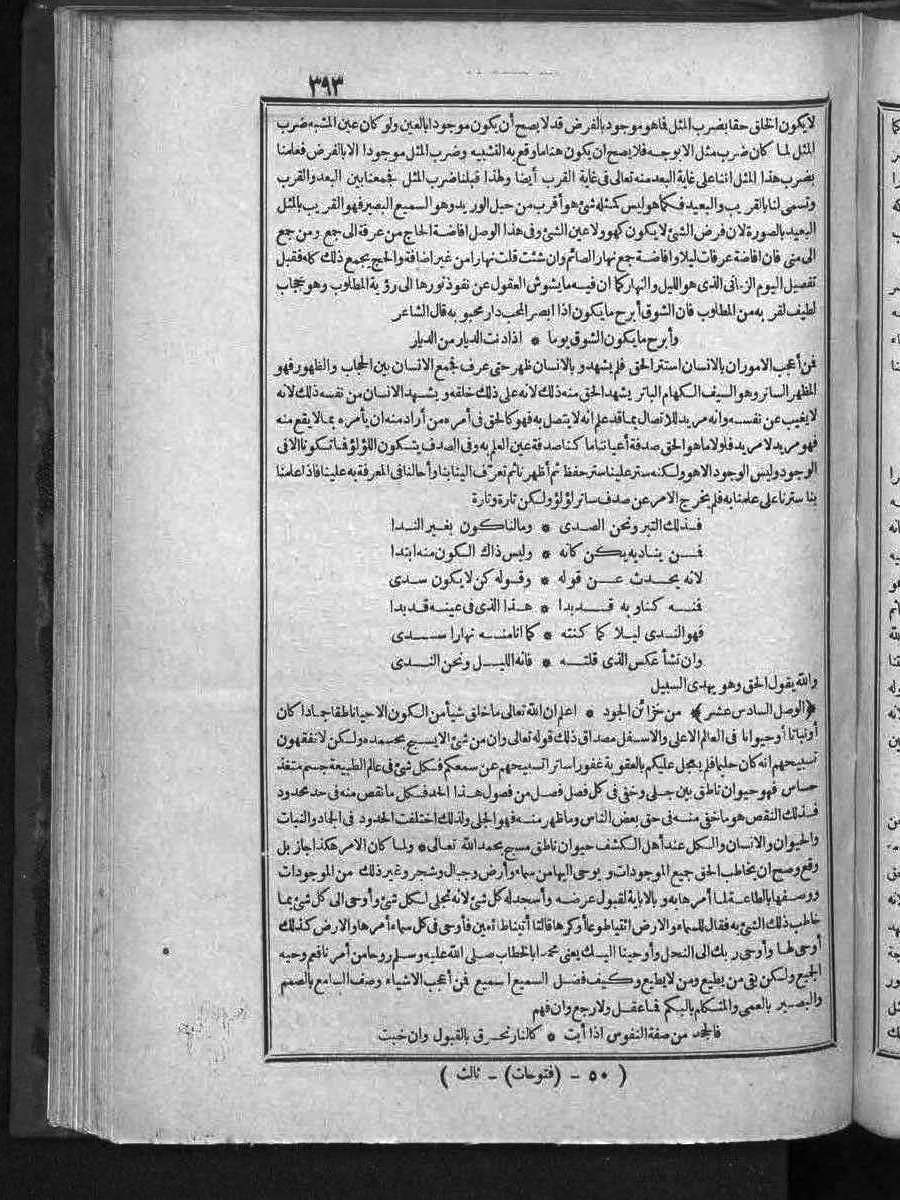 ٣٩٣
لا يكون الخلق حقا بضرب المثل فما هو موجود بالفرض قد لا يصح أن يكون موجودا بالعين ولو كان عين المشبه ضرب
المثل لما كان ضرب مثل الا بوجه فلا يصح ان يكون هنا ما وقع به التشبيه وضرب المثل موجودا الا بالفرض فعلمنا
بضرب هذا المثل اننا على غاية البعد منه تعالى فى غاية القرب أيضا ولهذا قبلنا ضرب المثل فجمعنا بين البعد والقرب
وتسمى لنا بالقريب والبعيد فكما هو ليس كمثله شئ هو أقرب من حبل الوريد وهو السميع البصير فهو القريب بالمثل
البعيد بالصورة لان فرض الشئ لا يكون كهو ولا عين الشئ وفى هذا الوصل افاضة الحاج من عرفة الى جمع ومن جمع
الى منى فان افاضة عرفات ليلا وافاضة جمع نهار الصائم وان شئت قلت نهارا من غير اضافة والحج يجمع ذلك كله فقبل
تفصيل اليوم الزمانى الذى هو الليل والنهار كما ان فيه ما يشوش العقول عن نفوذ نورها الى رؤية المطلوب وهو حجاب
لطيف لقربه من المطلوب فان الشوق أبرح ما يكون اذا ابصر المحب دار محبوبه قال الشاعر
وأبرح ما يكون الشوق يوما * اذا دنت الديار من الديار
فمن أعجب الامور ان بالانسان استتر الحق فلم يشهد وبالانسان ظهر حتى عرف فجمع الانسان بين الحجاب والظهور فهو
المظهر الساتر وهو السيف الكهام الباتر يشهد الحق منه ذلك لانه على ذلك خلقه ويشهد الانسان من نفسه ذلك لانه
لا يغيب عن نفسه وانه مريد للاتصال بما قد علم انه لا يتصل به فهو كالحق فى أمره من أراد منه ان يأمره بما لا يقع منه
فهو مريد لا مريد فلولا ما هو الحق صدفة أعياننا ما كنا صدفة عين العلم به وفى الصدف يتكون اللؤلؤ فما تكوّنا الا فى
الوجود وليس الوجود الا هو ولكنه ستر علينا ستر حفظ ثم أظهرنا ثم تعرّف الينا بنا وأحالنا فى المعرفة به علينا فاذا علمنا
بنا سترنا على علمنا به فلم يخرج الامر عن صدف ساتر لؤلؤ ولكن تارة وتارة
فذلك التبر ونحن الصدى * وما لنا كون بغير الندا
فمن يناديه يكن كانه * وليس ذاك الكون منه ابتدا
لانه يحدث عن قوله * وقوله كن لا يكون سدى
فمنه كنا وبه قد بدا * هذا الذى فى عينه قد بدا
فهو الندى ليلا كما كنته * كما انا منه نهارا سدى
وان تشأ عكس الذى قلته * فانه الليل ونحن الندى
والله يقول الحق وهو يهدى السبيل
﴿الوصل السادس عشر﴾ من خزائن الجود * اعلم ان الله تعالى ما خلق شيأ من الكون الا حيا ناطقا جمادا كان
أو نباتا أو حيوانا فى العالم الاعلى والاسفل مصداق ذلك قوله تعالى وان من شئ الا يسبح بحمده ولكن لا تفقهون
تسبيحهم انه كان حليما فلم يعجل عليكم بالعقوبة غفورا ساترا تسبيحهم عن سمعكم فكل شئ فى عالم الطبيعة جسم متغذ
حساس فهو حيوان ناطق بين جلى وخفى فى كل فصل فصل من فصول هذا الحد فكل ما نقص منه فى حد محدود
فذلك النقص هو ما خفى منه فى حق بعض الناس وما ظهر منه فهو الجلى ولذلك اختلفت الحدود فى الجماد والنبات
والحيوان والانسان والكل عند أهل الكشف حيوان ناطق مسبح بحمد الله تعالى * ولما كان الامر هكذا جاز بل
وقع وصح ان يخاطب الحق جميع الموجودات ويوحى اليها من سماء وأرض وجبال وشجر وغير ذلك من الموجودات
ووصفها بالطاعة لما أمرها به وبالاباية لقبول عرضه وأسجد له كل شئ لانه تجلى لكل شئ وأوحى الى كل شئ بما
خاطب ذلك الشئ به فقال للسماء والارض ائتيا طوعا أو كرها قالتا أتينا طائعين فأوحى فى كل سماء أمرها والارض كذلك
أوحى لها وأوحى ربك الى النحل وأوحينا اليك يعنى محمدا بالخطاب صلى الله عليه وسلم روحا من أمرنا فعم وحيه
الجميع ولكن بقى من يطيع ومن لا يطيع وكيف فضل السميع السميع فمن أعجب الاشياء وصف السامع بالصمم
والبصير بالعمى والمتكلم بالبكم فما عقل ولا رجع وان فهم
فالجحد من صفة النفوس اذا أبت * كالنار تحرق بالقبول وان خبت
( ٥٠ - (فتوحات) - ثالث )